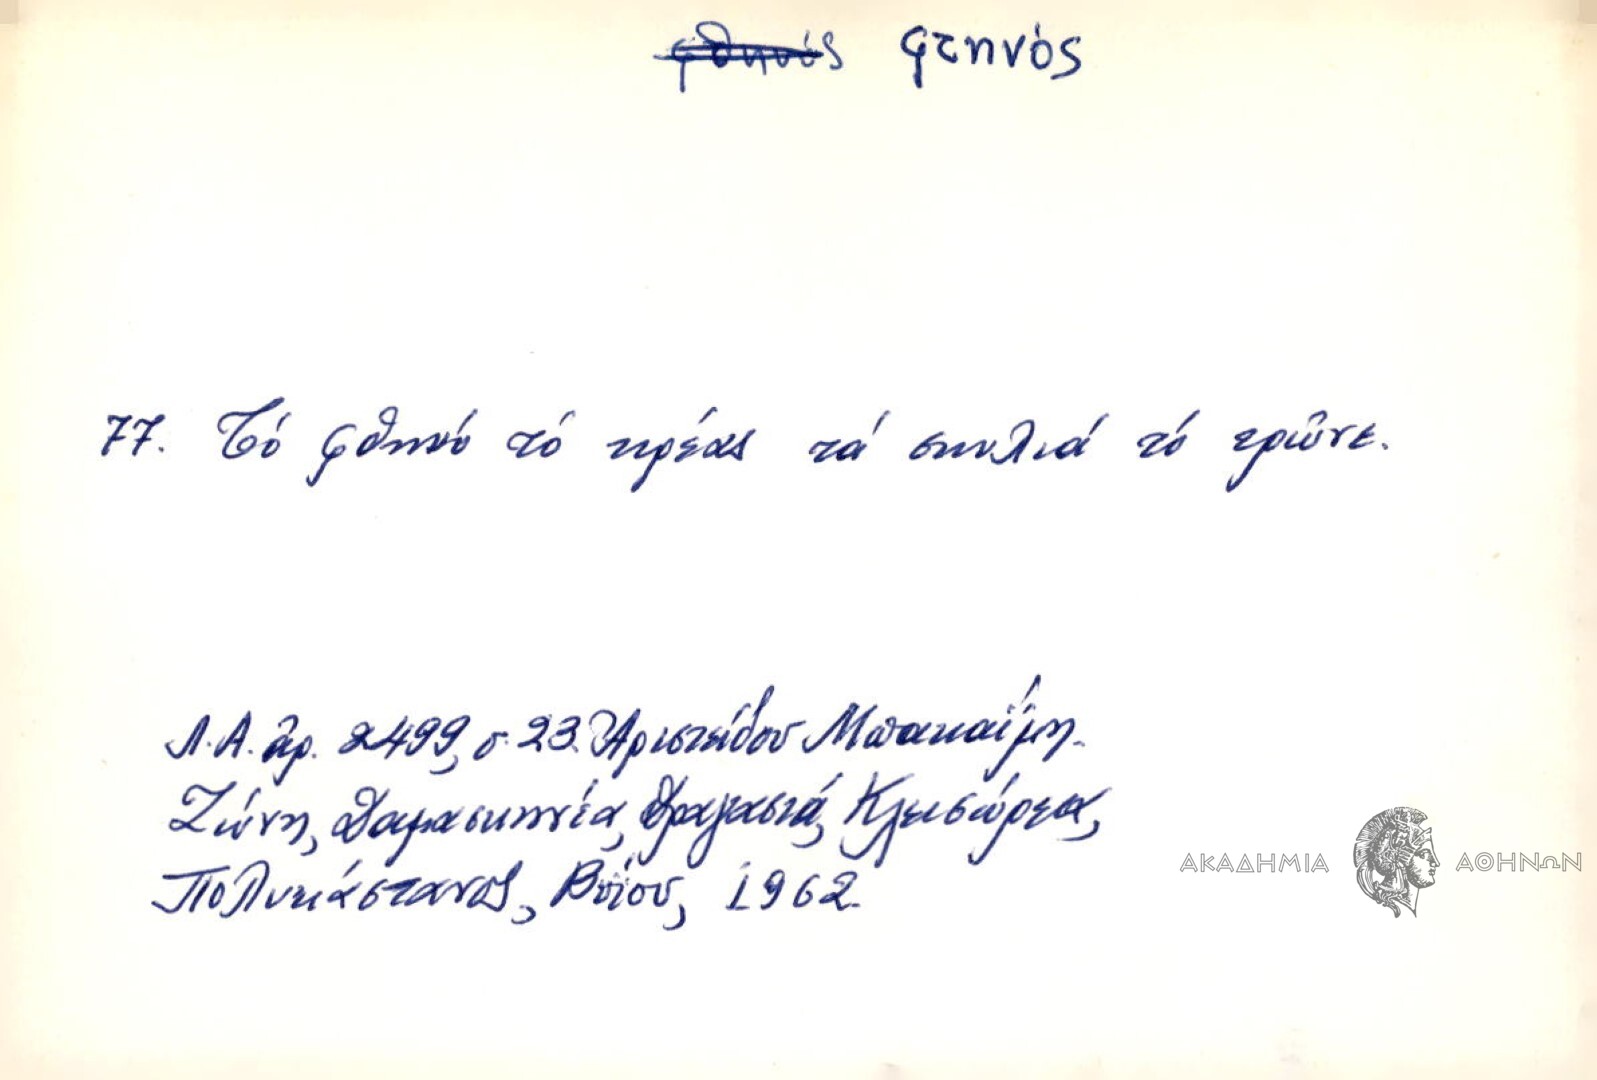 φθηνός φτηνός
77. Τό φθηνό τό κρέας τά σκυλιά τό τρῶνε.
Λ.Α. ἀρ. 2499, σ. 23. Ἀριστείδου Μπακαΐμη.
Ζώνη, Δαμασκηνέα, Δραγασιά, Κλεισώρεια,
Πολυκάστανος, Βοΐου, 1962.
ΑΚΑΔΗΜΙΑ ΑΘΗΝΩΝ